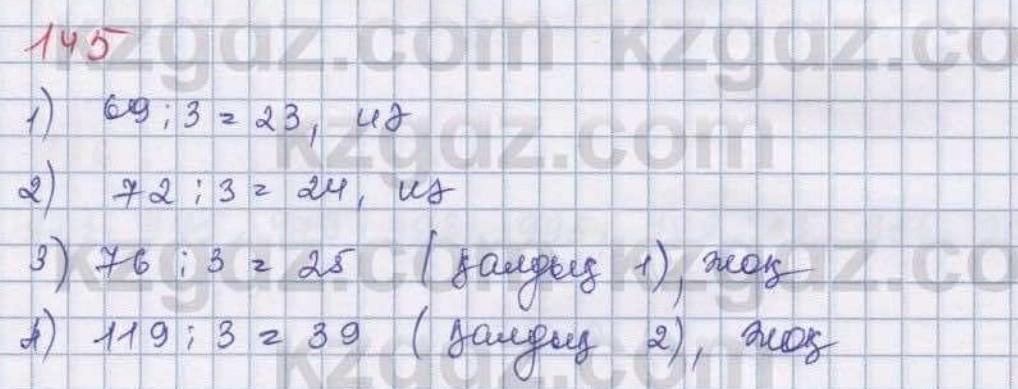 kzgdz.com kzgdz.co
145
1) 69 : 3 = 23, иә
kzgdz.com
2) 72 : 3 = 24, иә
3) 76 : 3 = 25 (қалдық 1), жоқ
4) 119 : 3 = 39 (қалдық 2), жоқ